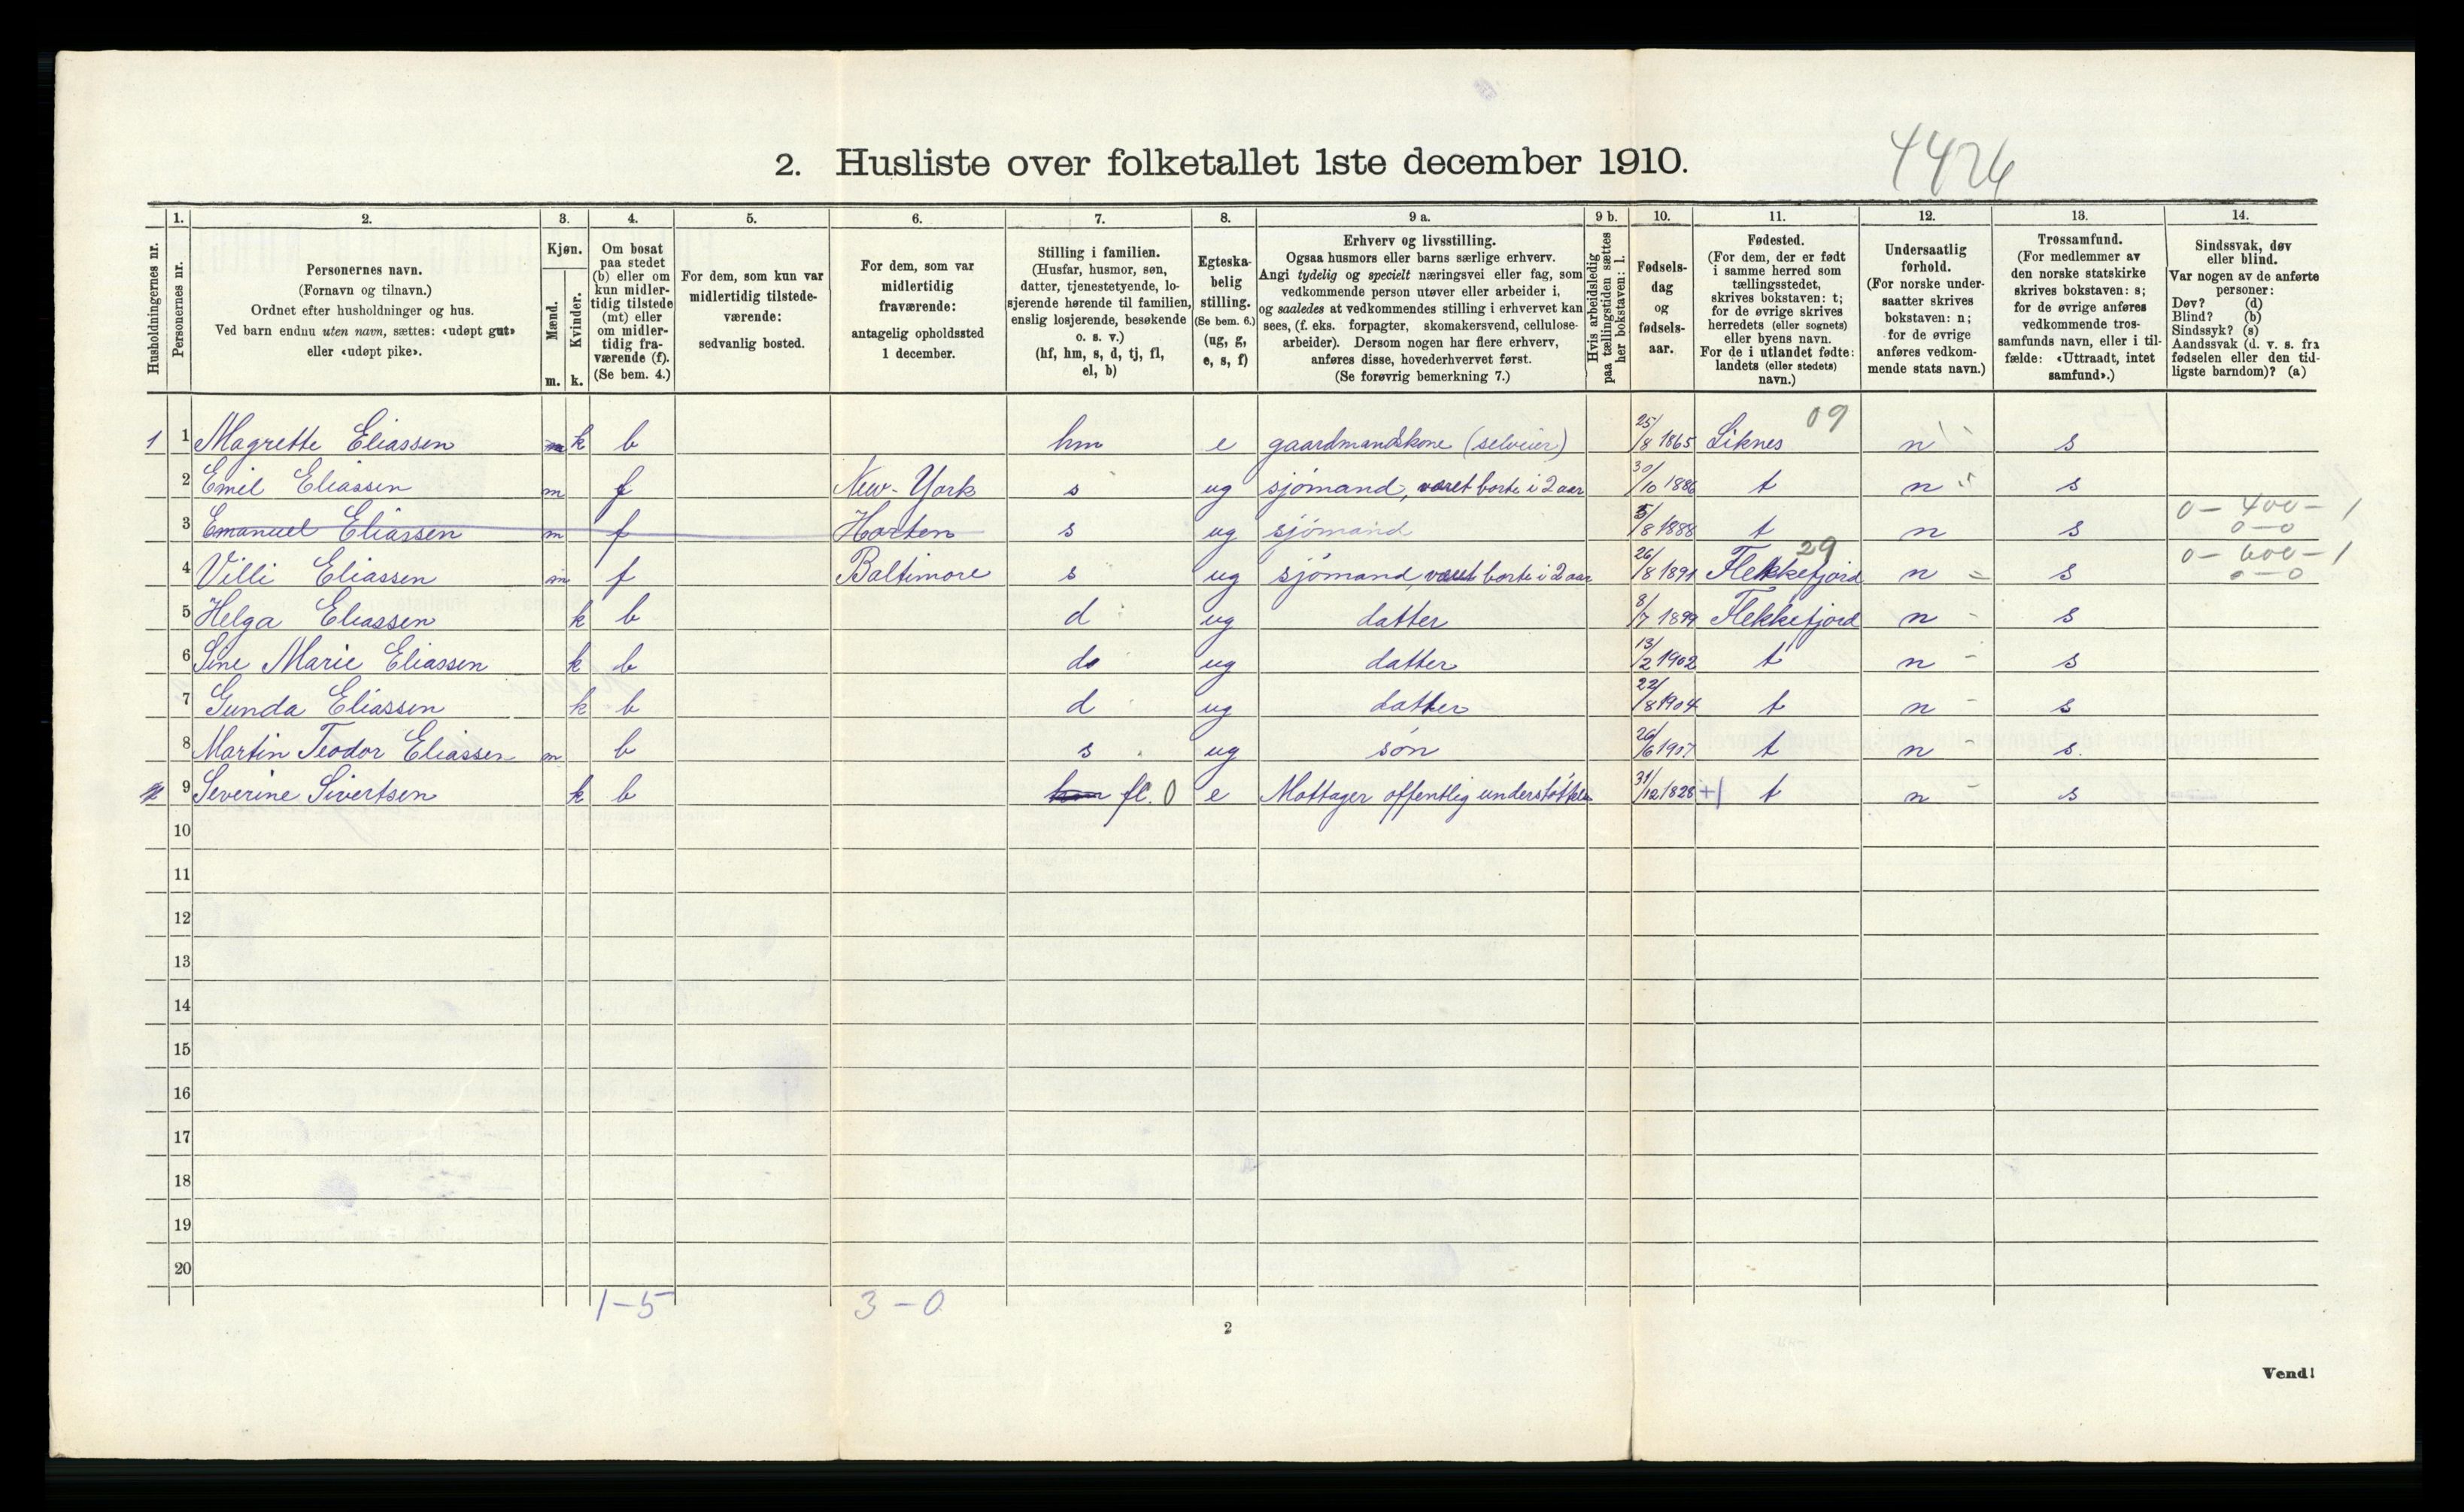 2. Husliste over folketallet 1ste december 1910.
4426
Husholdningernes nr.
1.
Personernes nr.
2.
Personernes navn.
(Fornavn og tilnavn.)
Ordnet efter husholdninger og hus.
Ved barn endnu uten navn, sættes: «udøpt gut»
eller «udøpt pike».
3.
Kjøn.
Mænd.
Kvinder.
m. k.
4.
Om bosat
paa stedet
(b) eller om
kun midler-
tidig tilstede
(mt) eller
om midler-
tidig fra-
værende (f).
(Se bem. 4.)
5.
For dem, som kun var
midlertidig tilstede-
værende:
sedvanlig bosted.
6.
For dem, som var
midlertidig
fraværende:
antagelig opholdssted
1 december.
7.
Stilling i familien.
(Husfar, husmor, søn,
datter, tjenestetyende, lo-
sjerende hørende til familien,
enslig losjerende, besøkende
o. s. v.)
(hf, hm, s, d, tj, fl,
el, b)
8.
Egteska-
belig
stilling.
(Se bem. 6.)
(ug, g,
e, s, f)
9 a.
Erhverv og livsstilling.
Ogsaa husmors eller barns særlige erhverv.
Angi tydelig og specielt næringsvei eller fag, som
vedkommende person utøver eller arbeider i,
og saaledes at vedkommendes stilling i erhvervet kan
sees, (f. eks. forpagter, skomakersvend, cellulose-
arbeider). Dersom nogen har flere erhverv,
anføres disse, hovederhvervet først.
(Se forøvrig bemerkning 7.)
9 b.
Hvis arbeidsledig
paa tællingstiden sættes
her bokstaven: l.
10.
Fødsels-
dag
og
fødsels-
aar.
11.
Fødested.
(For dem, der er født
i samme herred som
tællingsstedet,
skrives bokstaven: t;
for de øvrige skrives
herredets (eller sognets)
eller byens navn.
For de i utlandet fødte:
landets (eller stedets)
navn.)
12.
Undersaatlig
forhold.
(For norske under-
saatter skrives
bokstaven: n;
for de øvrige
anføres vedkom-
mende stats navn.)
13.
Trossamfund.
(For medlemmer av
den norske statskirke
skrives bokstaven: s;
for de øvrige anføres
vedkommende tros-
samfunds navn, eller i til-
fælde: «Uttraadt, intet
samfund».)
14.
Sindssvak, døv
eller blind.
Var nogen av de anførte
personer:
Døv? (d)
Blind? (b)
Sindssyk? (s)
Aandssvak (d. v. s. fra
fødselen eller den tid-
ligste barndom)? (a)
09
1 1 Magrette Eliassen k b hm e gaardmandskone (selveier) 25/8 1865 Liknes n s
2 Emil Eliassen m f New-York s ug sjömand, været borte i 2 aar 30/10 1886 t n s
3 Emanuel Eliassen m f Horten s ug sjömand 5/8 1888 t n s 0-400-1 0-0
29
4 Villi Eliassen m f Baltimore s ug sjömand, været borte i 2 aar 26/8 1891 Flekkefjord n s 0-600-1 0-0
5 Helga Eliassen k b d ug datter 8/7 1899 Flekkefjord n s
6 Sine Marie Eliassen k b d ug datter 13/2 1902 t n s
7 Gunda Eliassen k b d ug datter 22/8 1904 t n s
8 Martin Teodor Eliassen m b s ug sön 26/6 1907 t n s
9 Severine Sivertsen k b fl. 0 e Mottager offentlig 31/12 1828 + t n s
10
11
12
13
14
15
16
17
18
19
20
1-5 3-0
2
Vend!